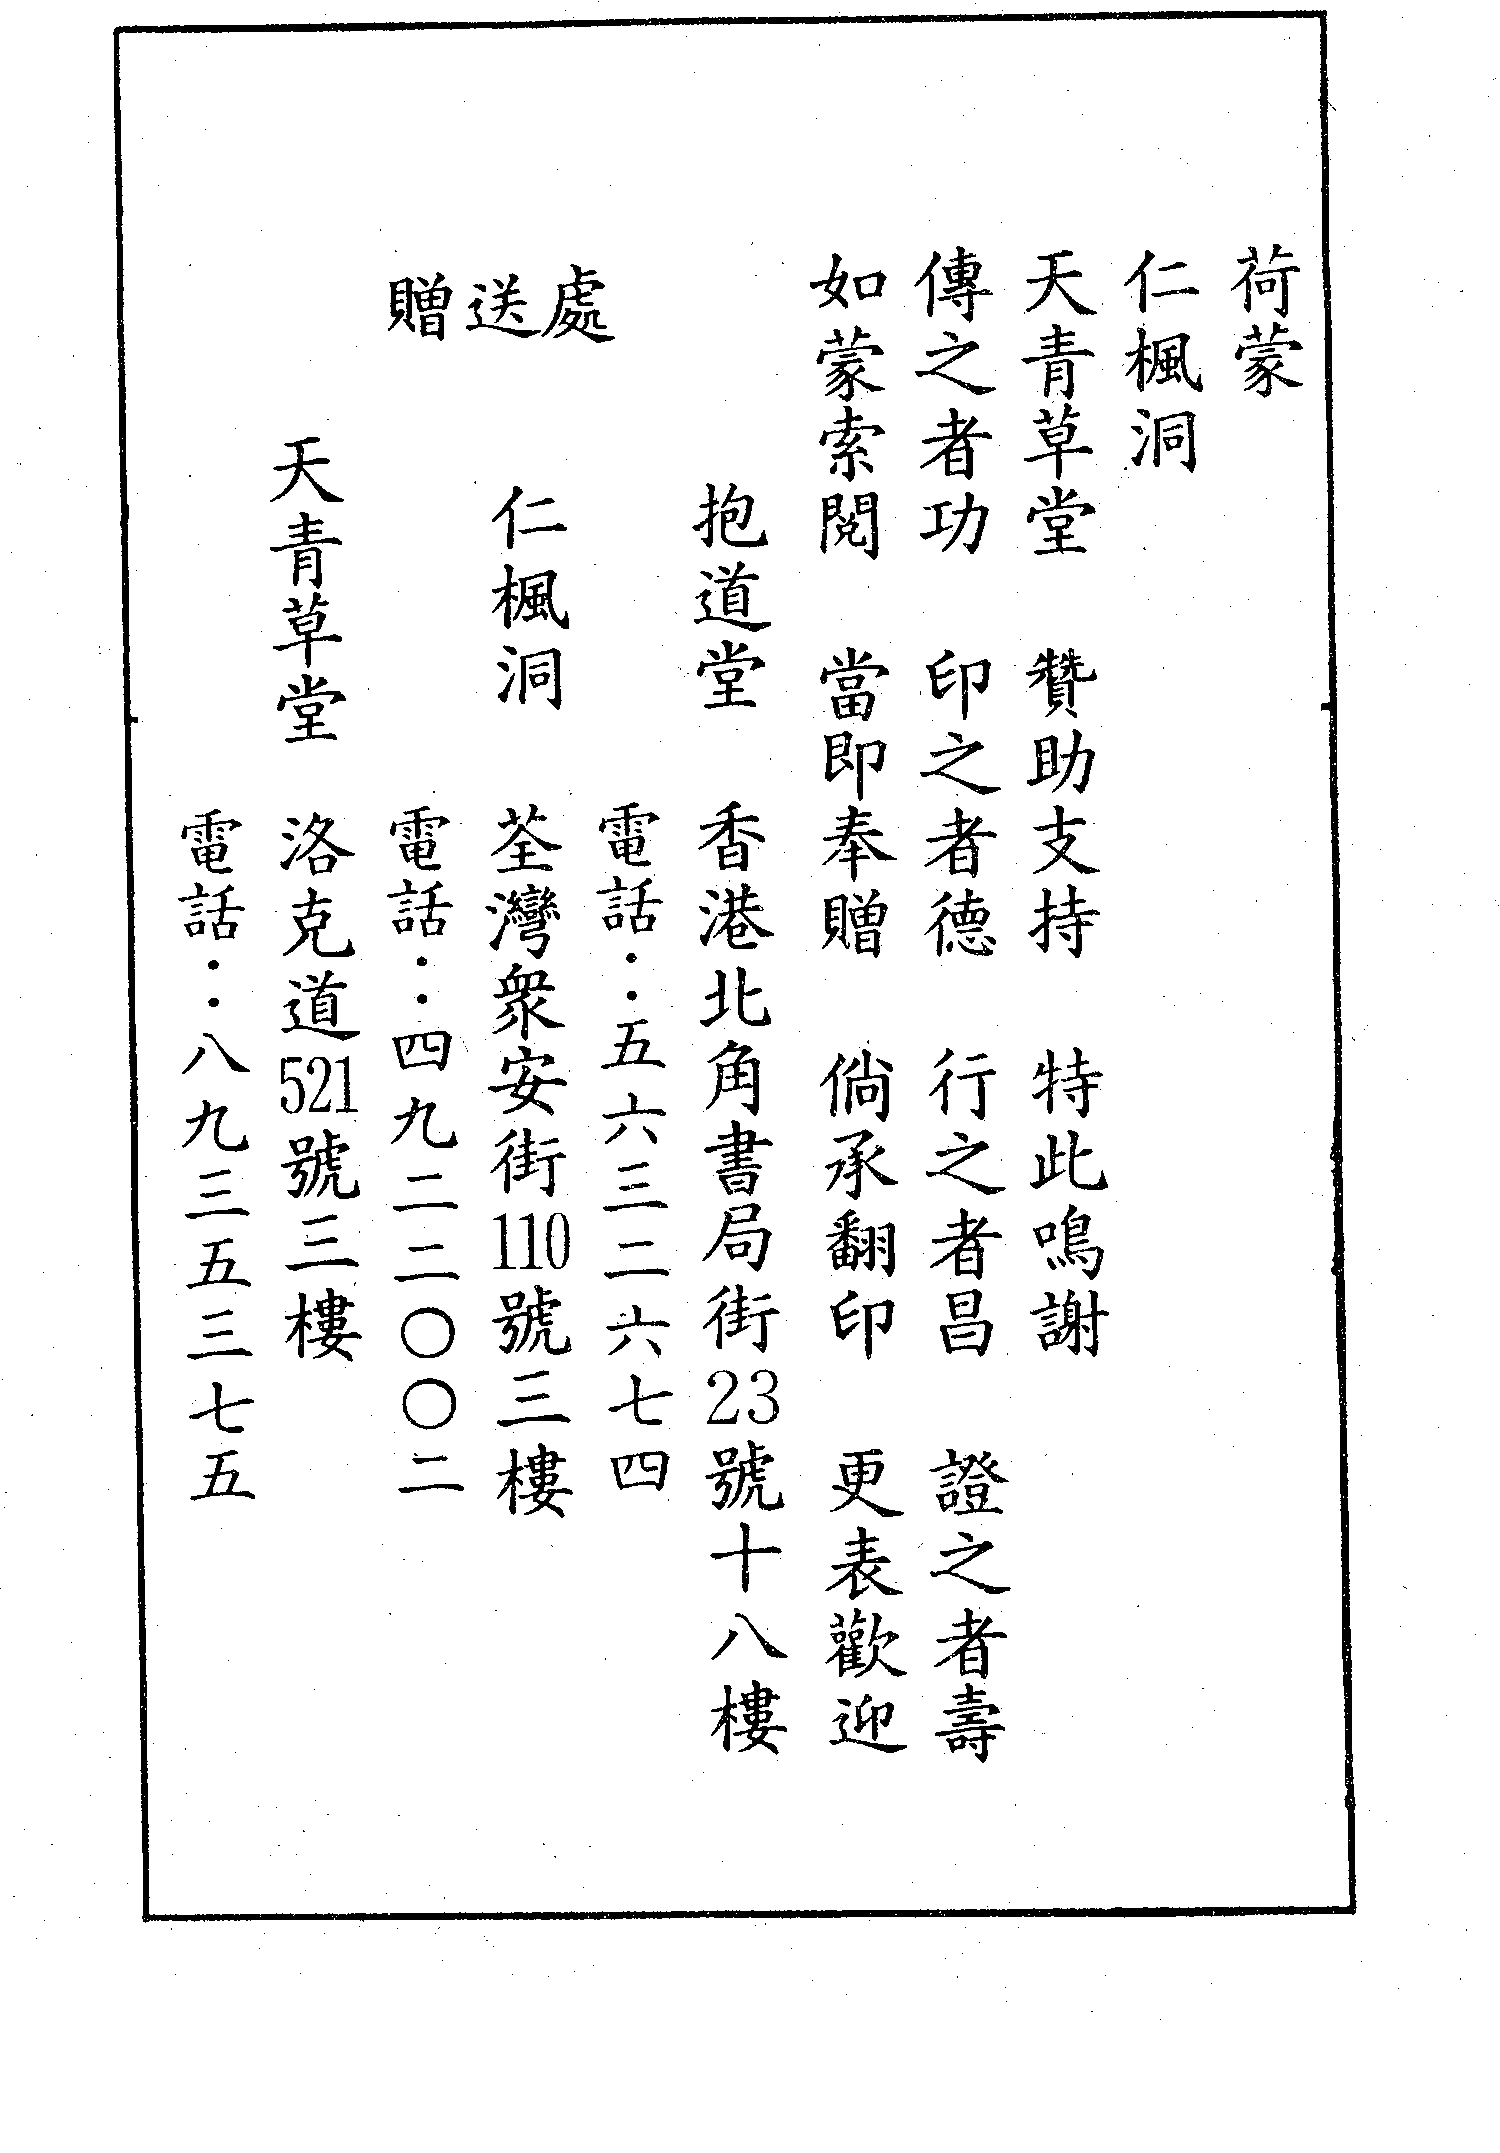 荷蒙
仁楓洞
天青草堂　贊助支持　特此鳴謝
傳之者功　印之者德　行之者昌　證之者壽
如蒙索閱　當即奉贈　倘承翻印　更表歡迎
贈送處
抱道堂　香港北角書局街23號十八樓
電話：五六三二六七四
仁楓洞　荃灣眾安街110號三樓
電話：四九二二〇〇二
天青草堂　洛克道521號三樓
電話：八九三五三七五